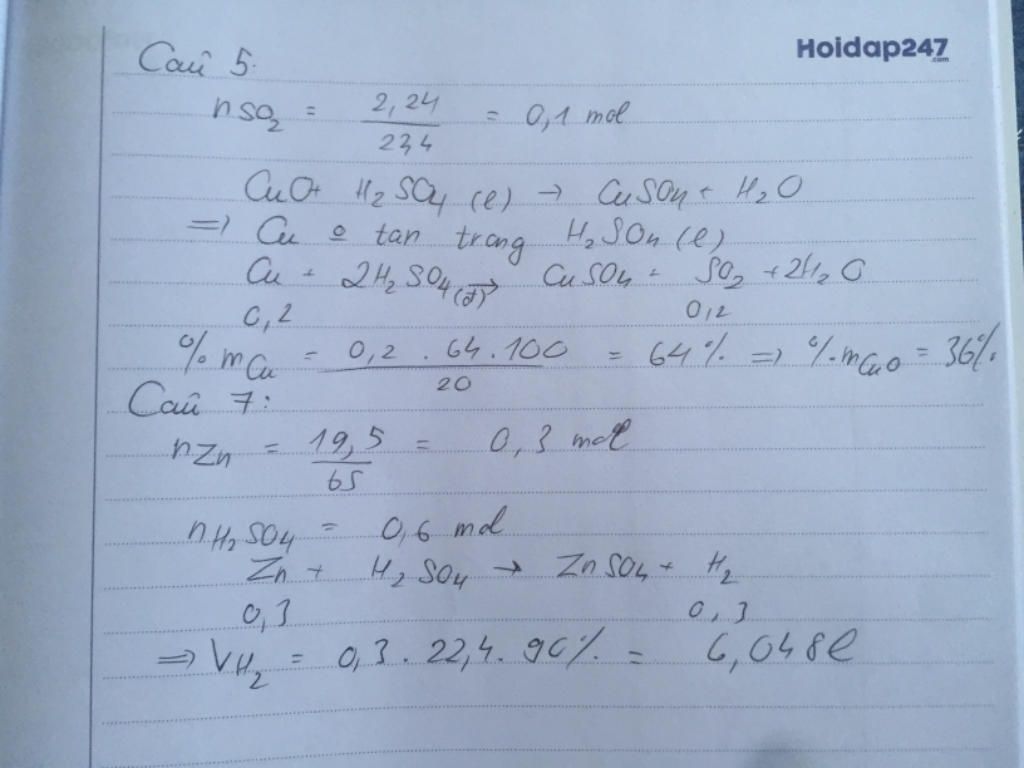 Hoidap247
.com
Câu 5:
nSO₂ = 2,24 / 22,4 = 0,1 mol
CuO + H₂SO₄ (l) → CuSO₄ + H₂O
=> Cu o tan trong H₂SO₄ (l)
Cu + 2H₂SO₄ (đ) → CuSO₄ + SO₂ + 2H₂O
0,2 0,2
% mCu = 0,2 . 64 . 100 / 20 = 64% => % mCuO = 36%
Câu 7:
nZn = 19,5 / 65 = 0,3 mol
nH₂SO₄ = 0,6 mol
Zn + H₂SO₄ → ZnSO₄ + H₂
0,3 0,3
=> VH₂ = 0,3 . 22,4 . 90% = 6,048l